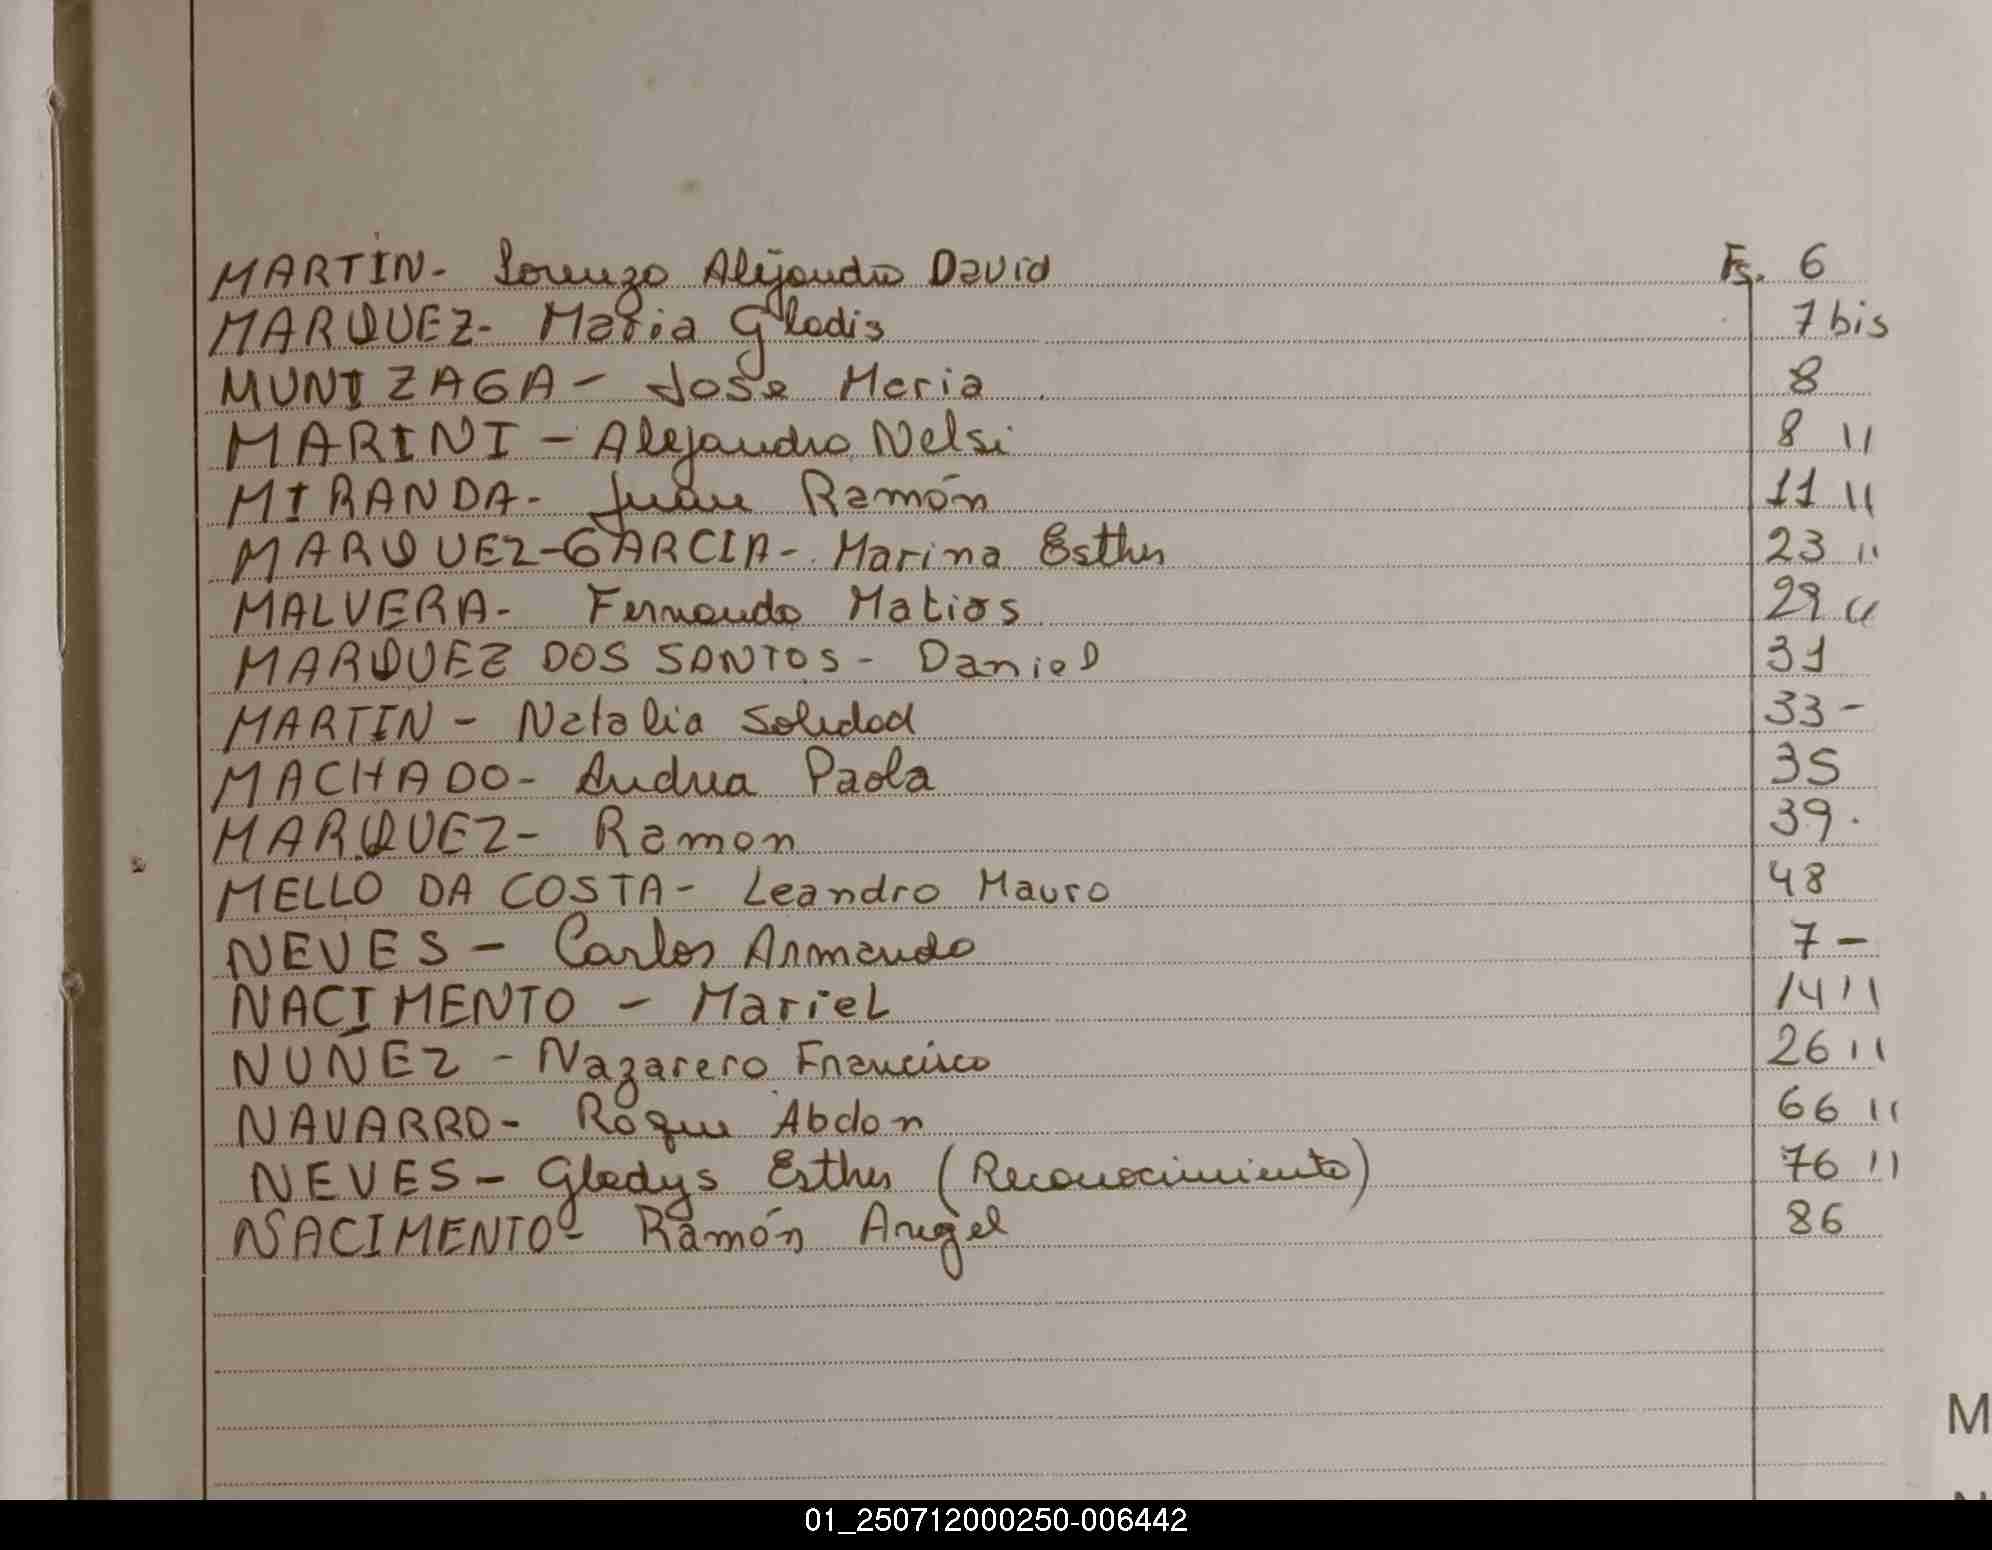 MARTIN- Lorenzo Alejandro David Fs. 6
MARQUEZ- Maria Gladis 7 bis
MUNIZAGA- Jose Maria 8
MARINI - Alejandro Nelsi 8 "
MIRANDA- Juan Ramón 11 "
MARQUEZ-GARCIA- Marina Esther 23 "
MALVERA- Fernando Matias 29 "
MARQUEZ DOS SANTOS- Daniel 31
MARTIN - Natalia Soledad 33 -
MACHADO- Andrea Paola 35
MARQUEZ- Ramon 39.
MELLO DA COSTA- Leandro Mauro 48
NEVES - Carlos Armando 7 -
NACIMENTO - Mariel 14 "
NUÑEZ - Nazarero Francisco 26 "
NAVARRO- Roque Abdon 66 "
NEVES- Gladys Esther (Reconocimiento) 76 "
NACIMENTO- Ramón Angel 86
M
01_250712000250-006442